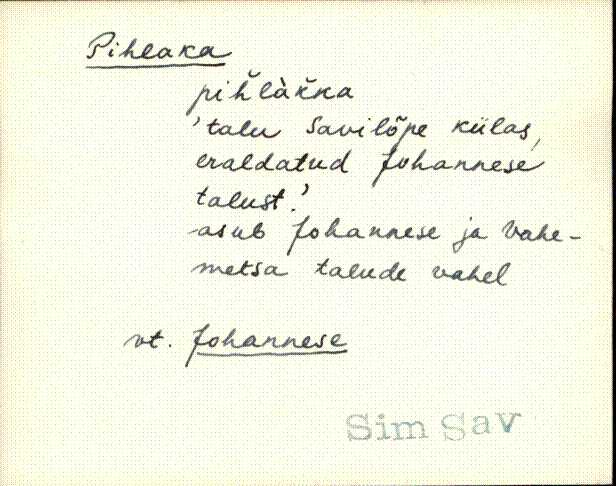 Pihlaka
pih̆làk̆ka
'talu Savilõpe külas,
eraldatud Johannese
talust.'
asub Johannese ja Vahe-
metsa talude vahel
vt. Johannese
Sim Sav